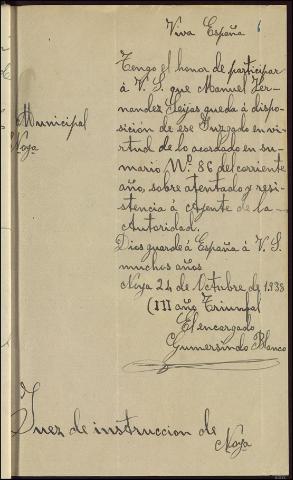 Viva España
6
Tengo el honor de participar
á V. S. que Manuel Fer-
nandez Seijas queda á dispo-
sición de ese Juzgado en vir-
tud de lo acordado en su-
mario Nº. 86 del corriente
año, sobre atentado y resi-
stencia á Ajente de la
Autoridad.
Dios guarde á España á V. S.
muchos años
Noya 24 de Octubre de 1.938
(III año Triunfal
El encargado
Gumersindo Blanco
Municipal
Noya
Juez de instruccion de
Noya